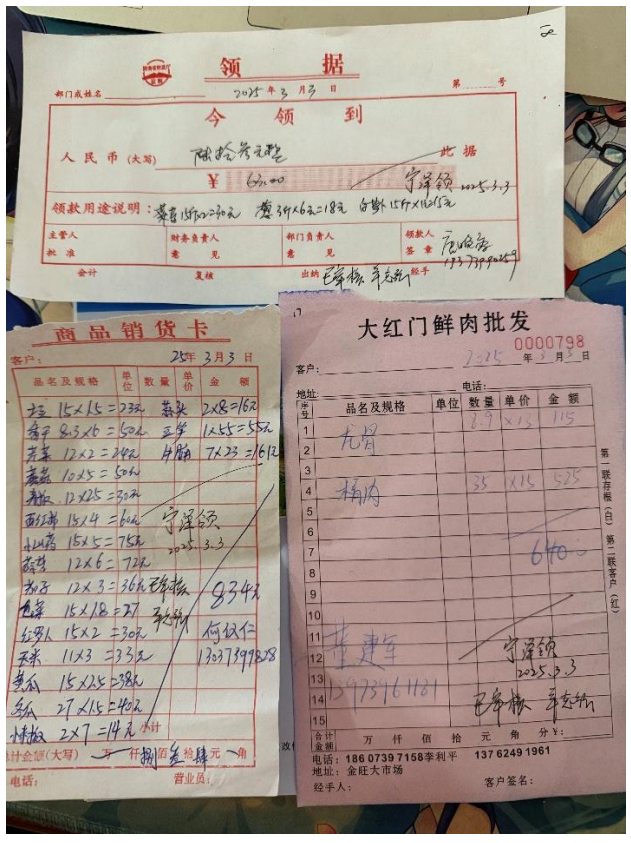 领 据
部门或姓名 2025年3月3日 第 号
今 领 到
人民币(大写) 陆拾叁元整 此据
¥ 63.00 宁泽领 2025.3.3
领款用途说明: 15斤×2=30元 葱 3斤×6元=18元 15斤×1=15元
主管人 财务负责人 部门负责人 领款人
批准 意见 意见 签章
会计 复核 出纳 经手
商品销货卡
客户: 25年3月3日
品名及规格 单位 数量 单价 金额
15×1.5=23元 蒜头 2×8=16元
香干 8.3×6=50元 1×55=55元
芹菜 12×2=24元 牛腩 7×23=161元
蘑菇 10×5=50元
12×2.5=30元
西红柿 15×4=60元 宁泽领
小山药 15×5=75元 2025.3.3
12×6=72元
茄子 12×3=36元 834元
包菜 15×1.8=27
15×2=30元
玉米 11×3=33元 13037399828
黄瓜 15×2.5=38元
冬瓜 27×1.5=40元
小米椒 2×7=14元 小计
合计金额(大写) 万 仟 捌佰叁拾肆元 角
电话: 营业员:
17
大红门鲜肉批发
0000798
客户: 2025年3月3日
地址: 电话:
序号 品名及规格 单位 数量 单价 金额
1 龙骨 ×13 115
2
3
4 精肉 35 ×15 525
5
6
7 640
8
9
10
11
12 宁泽领
13 2025.3.3
14
15
合计金额 万 仟 佰 拾 元 角 分 ¥:
电话: 186 0739 7158李利平 137 6249 1961
地址: 金旺大市场
经手人: 客户签名:
第一联存根(白) 第二联客户(红)